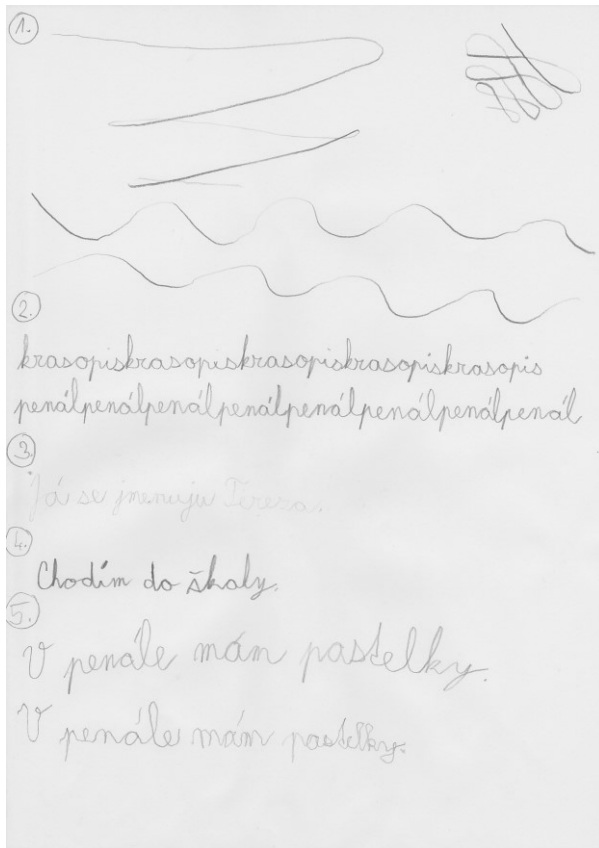 1.
2.
krasopiskrasopiskrasopiskrasopiskrasopis
penálpenálpenálpenálpenálpenálpenálpenál
3.
Já se jmenuju Tereza.
4.
Chodím do školy.
5.
V penále mám pastelky.
V penále mám pastelky.